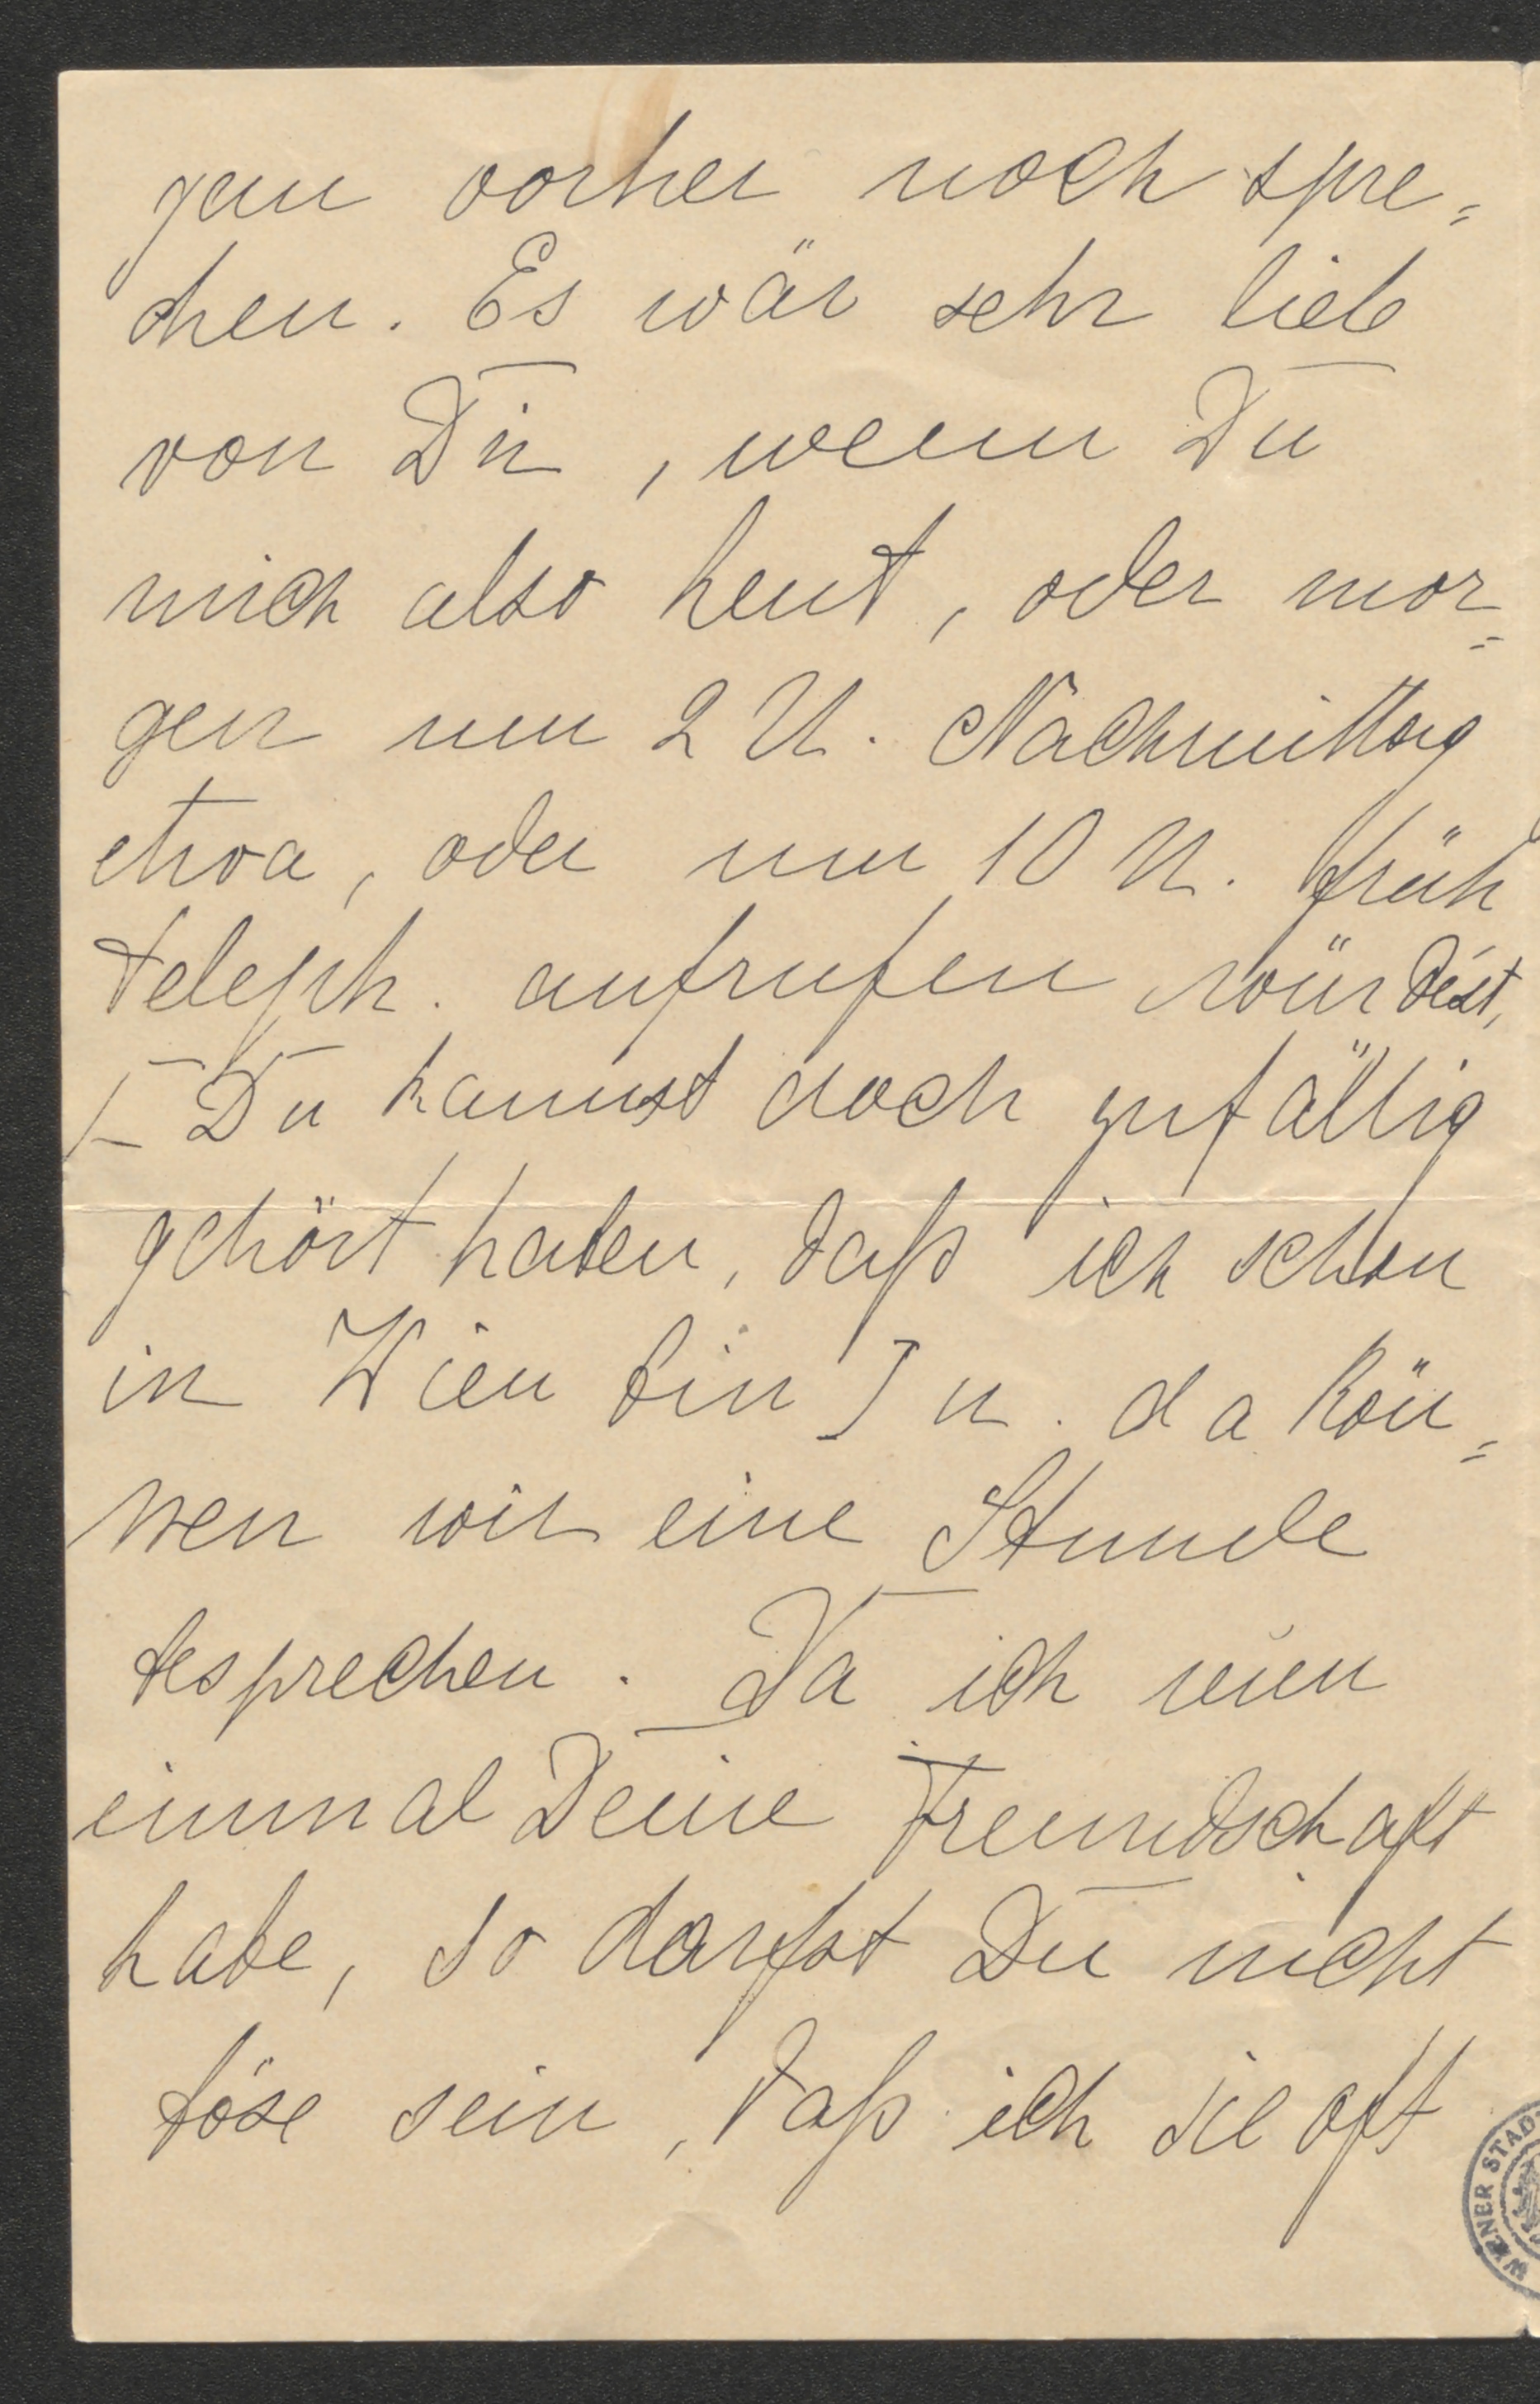 gern vorher noch spre=
chen. Es wär sehr lieb
von Dir, wenn Du
mich also heut, oder mor=
gen um 2 U. Nachmittag
etwa, oder um 10 U. früh
teleph. anfrufen würdest,
[Du kannst doch zufällig
gehört haben, daß ich schon
in Wien bin] u. da kön=
nen wir eine Stunde
besprechen. Da ich nun
einmal Deine Freundschaft
habe, so darfst Du nicht
böse sein, daß ich sie oft
WIENER STAD